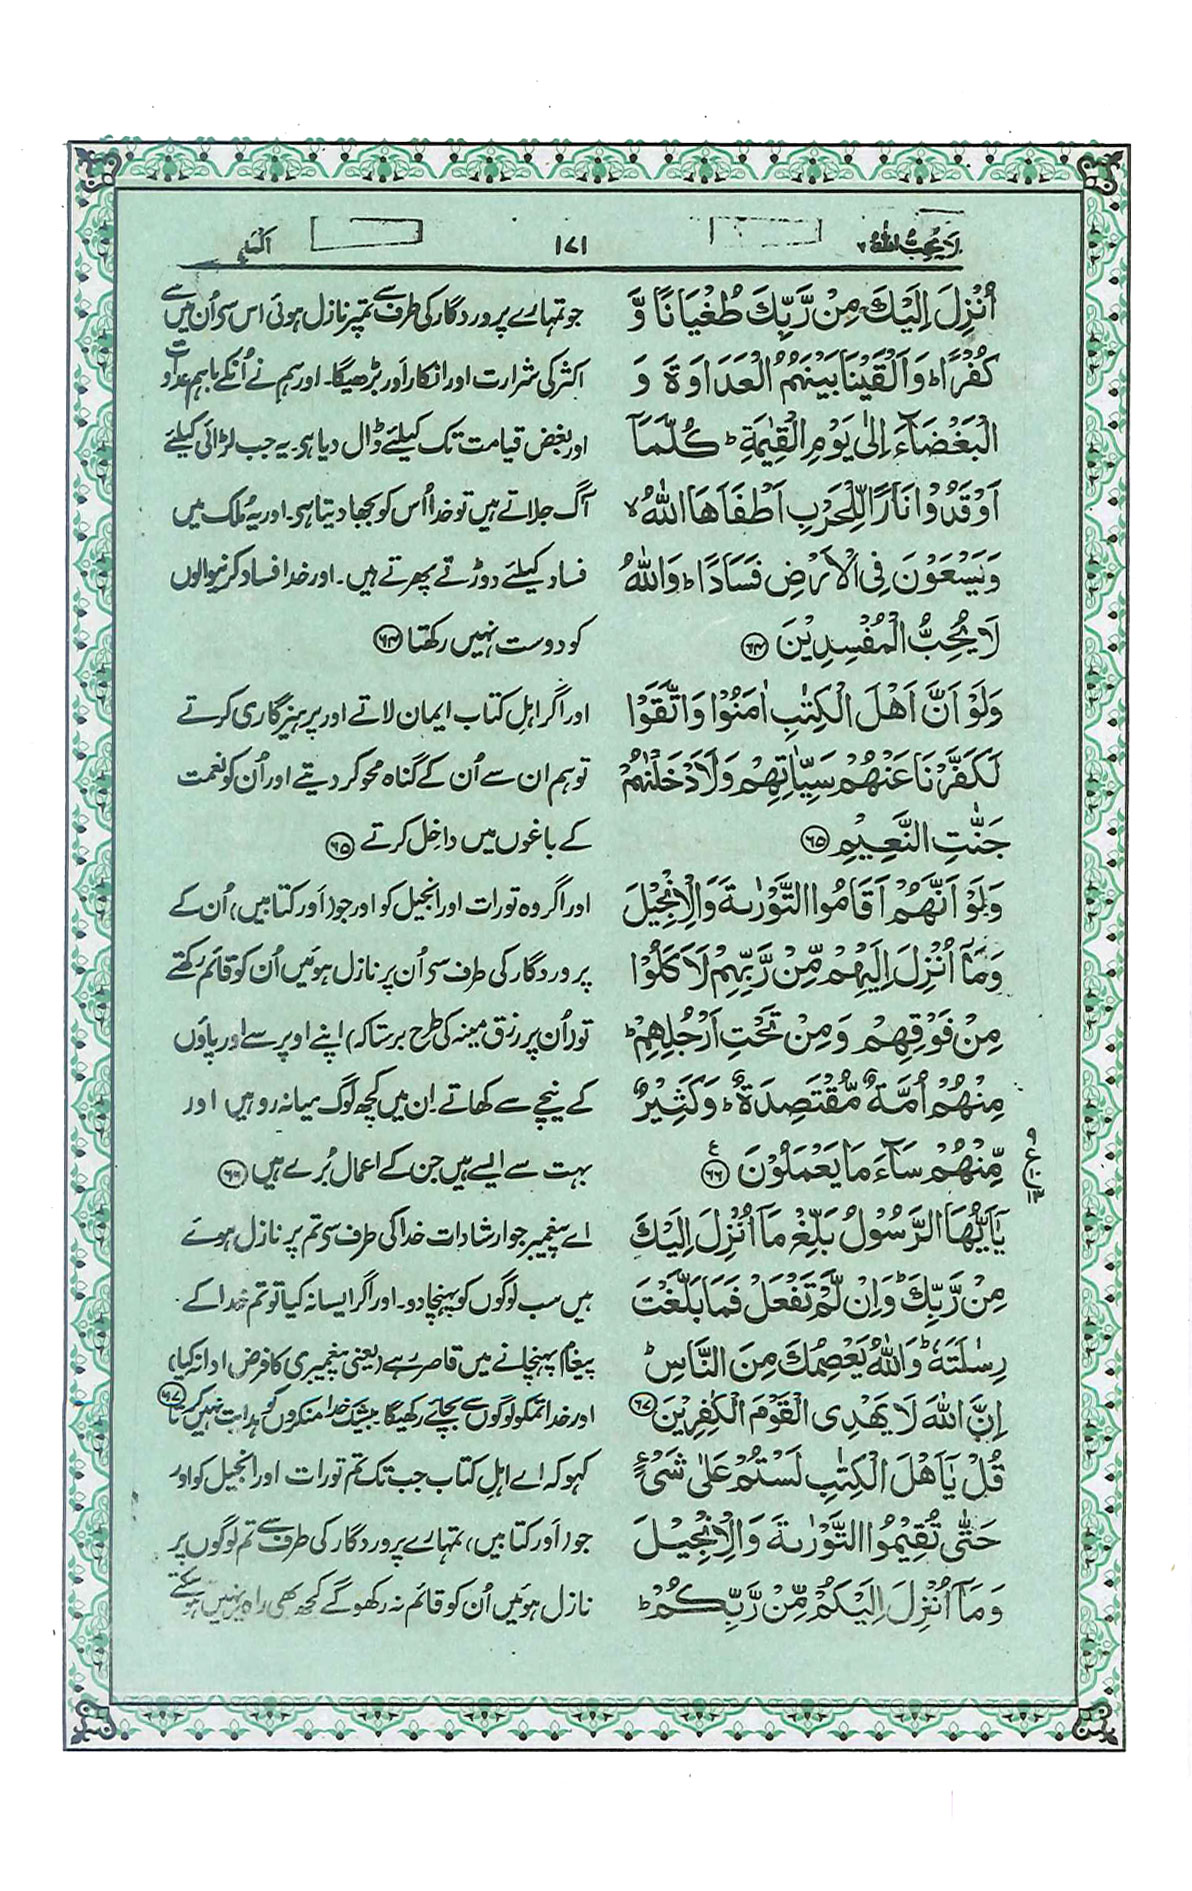 لَا يُحِبُّ اللهُ ٦
١٧١
اُنْزِلَ اِلَيْكَ مِنْ رَّبِّكَ طُغْيَانًا وَّ
كُفْرًا ؕ وَاَلْقَيْنَا بَيْنَهُمُ الْعَدَاوَةَ وَ
الْبَغْضَآءَ اِلٰى يَوْمِ الْقِيٰمَةِ ؕ كُلَّمَآ
اَوْقَدُوْا نَارًا لِّلْحَرْبِ اَطْفَاَهَا اللّٰهُ ۙ
وَيَسْعَوْنَ فِى الْاَرْضِ فَسَادًا ؕ وَاللّٰهُ
لَا يُحِبُّ الْمُفْسِدِيْنَ ﴿٦٤﴾
وَلَوْ اَنَّ اَهْلَ الْكِتٰبِ اٰمَنُوْا وَاتَّقَوْا
لَكَفَّرْنَا عَنْهُمْ سَيِّاٰتِهِمْ وَلَاَدْخَلْنٰهُمْ
جَنّٰتِ النَّعِيْمِ ﴿٦٥﴾
وَلَوْ اَنَّهُمْ اَقَامُوا التَّوْرٰىةَ وَالْاِنْجِيْلَ
وَمَآ اُنْزِلَ اِلَيْهِمْ مِّنْ رَّبِّهِمْ لَاَكَلُوْا
مِنْ فَوْقِهِمْ وَمِنْ تَحْتِ اَرْجُلِهِمْ ؕ
مِنْهُمْ اُمَّةٌ مُّقْتَصِدَةٌ ؕ وَكَثِيْرٌ
مِّنْهُمْ سَآءَ مَا يَعْمَلُوْنَ ﴿٦٦﴾
يٰۤاَيُّهَا الرَّسُوْلُ بَلِّغْ مَآ اُنْزِلَ اِلَيْكَ
مِنْ رَّبِّكَ ؕ وَاِنْ لَّمْ تَفْعَلْ فَمَا بَلَّغْتَ
رِسٰلَتَهٗ ؕ وَاللّٰهُ يَعْصِمُكَ مِنَ النَّاسِ ؕ
اِنَّ اللّٰهَ لَا يَهْدِى الْقَوْمَ الْكٰفِرِيْنَ ﴿٦٧﴾
قُلْ يٰۤاَهْلَ الْكِتٰبِ لَسْتُمْ عَلٰى شَىْءٍ
حَتّٰى تُقِيْمُوا التَّوْرٰىةَ وَالْاِنْجِيْلَ
وَمَآ اُنْزِلَ اِلَيْكُمْ مِّنْ رَّبِّكُمْ ؕ
جو تمہارے پروردگار کی طرف سے تمپر نازل ہوئی اس سی اُن میں سے
اکثر کی شرارت اور انکار اَور بڑھیگا۔ اور ہم نے اُنکے باہم عداوت
اور بغض قیامت تک کیلئے ڈال دیا ہی۔ یہ جب لڑائی کیلئے
آگ جلاتے ہیں تو خدا اُس کو بجھا دیتا ہی۔ اور یہ مُلک میں
فساد کیلئے دوڑتے پھرتے ہیں۔ اور خدا فساد کرنیوالوں
کو دوست نہیں رکھتا ﴿٦٤﴾
اور اگر اہل کتاب ایمان لاتے اور پرہیزگاری کرتے
تو ہم ان سے اُن کے گناہ محو کر دیتے اور اُن کو نعمت
کے باغوں میں داخِل کرتے ﴿٦٥﴾
اور اگر وہ تورات اور انجیل کو اور جو (اَور کتابیں) اُن کے
پروردگار کی طرف سی اُن پر نازل ہوئیں اُن کو قائم رکھتے
تو (اُن پر رزق مینہ کی طرح برستا کہ) اپنے اوپر سے اور پاؤں
کے نیچے سے کھاتے۔ اِن میں کچھ لوگ میانہ رو ہیں اور
بہت سے ایسے ہیں جن کے اعمال بُرے ہیں ﴿٦٦﴾
اے پیغمبر جو ارشادات خدا کی طرف سی تم پر نازل ہوئے
ہیں سب لوگوں کو پہنچا دو۔ اور اگر ایسا نہ کیا تو تم خدا کے
پیغام پہنچانے میں قاصر رہے (یعنی پیغمبری کا فرض ادا نہ کیا)
اور خدا تمکو لوگوں سے بچائے رکھیگا بیشک خدا منکروں کو ہدایت نہیں کرتا ﴿٦٧﴾
کہو کہ اے اہل کتاب جب تک تم تورات اور انجیل کو اور
جو (اَور کتابیں) تمہارے پروردگار کی طرف سے تم لوگوں پر
نازل ہوئیں اُن کو قائم نہ رکھو گے کچھ بھی راہ پر نہیں ہو سکتے